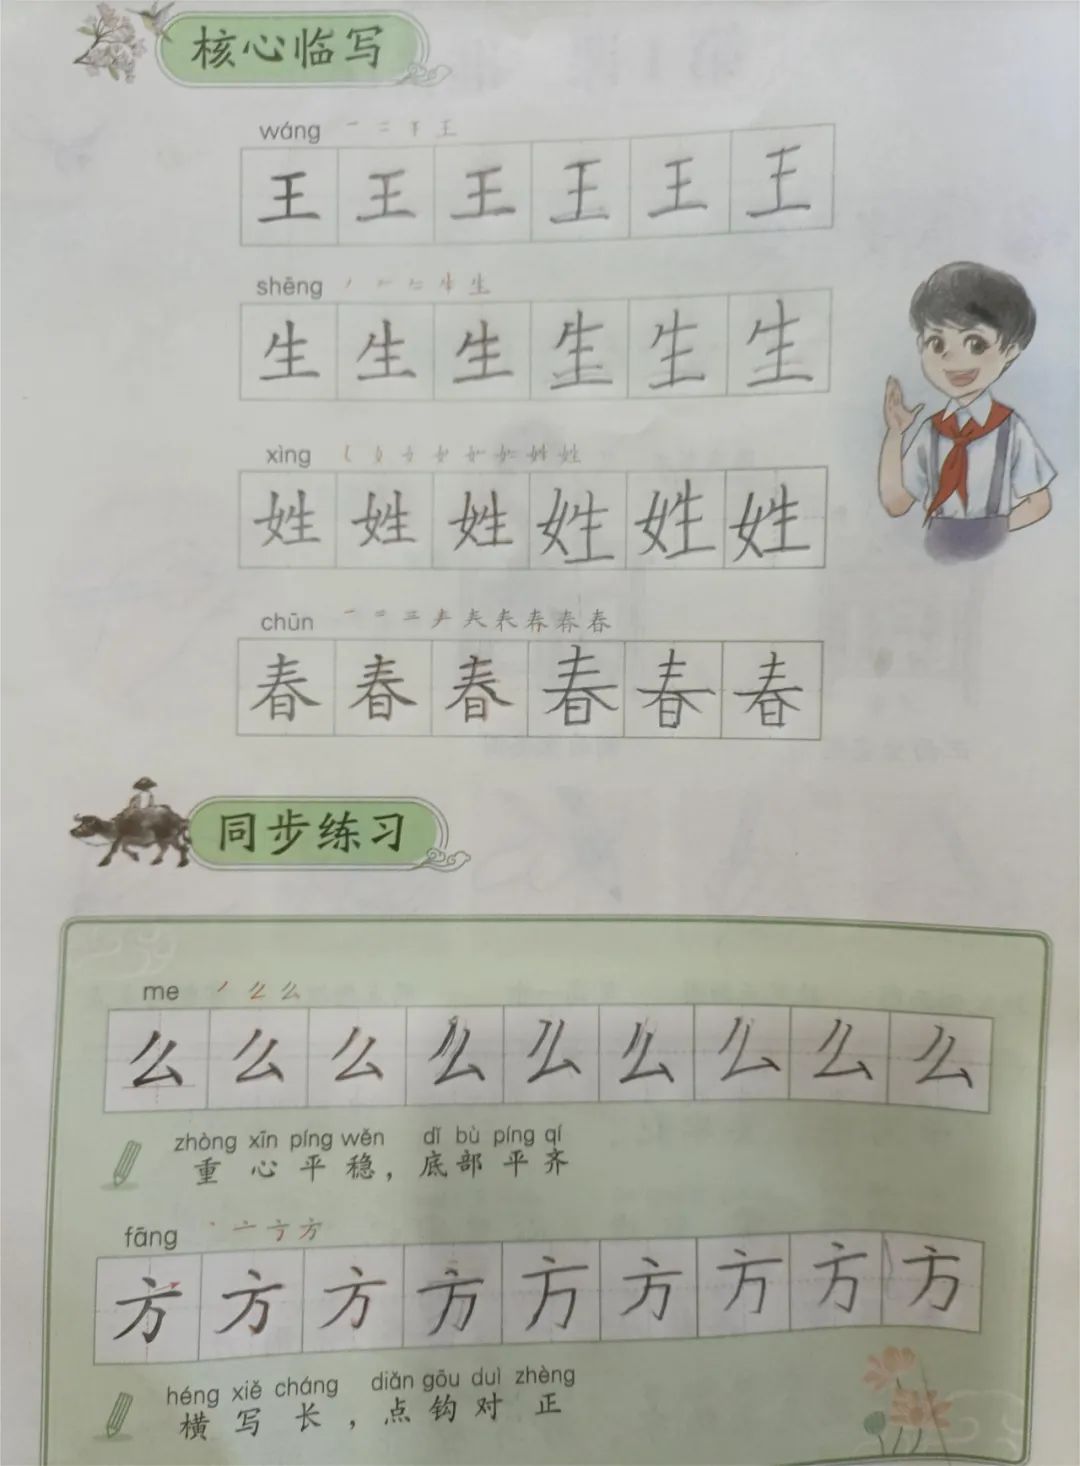 核心临写
wáng 一 二 干 王
王 王 王 王 王 王
shēng 丿 𠂉 生
生 生 生 生 生 生
xìng 姓
姓 姓 姓 姓 姓 姓
chūn 一 二 三 春
春 春 春 春 春 春
同步练习
me 丿 么 么
么 么 么 么 么 么 么 么 么
zhòng xīn píng wěn dǐ bù píng qí
重心平稳，底部平齐
fāng 丶 亠 方
方 方 方 方 方 方 方 方 方
héng xiě cháng diǎn gōu duì zhèng
横写长，点钩对正